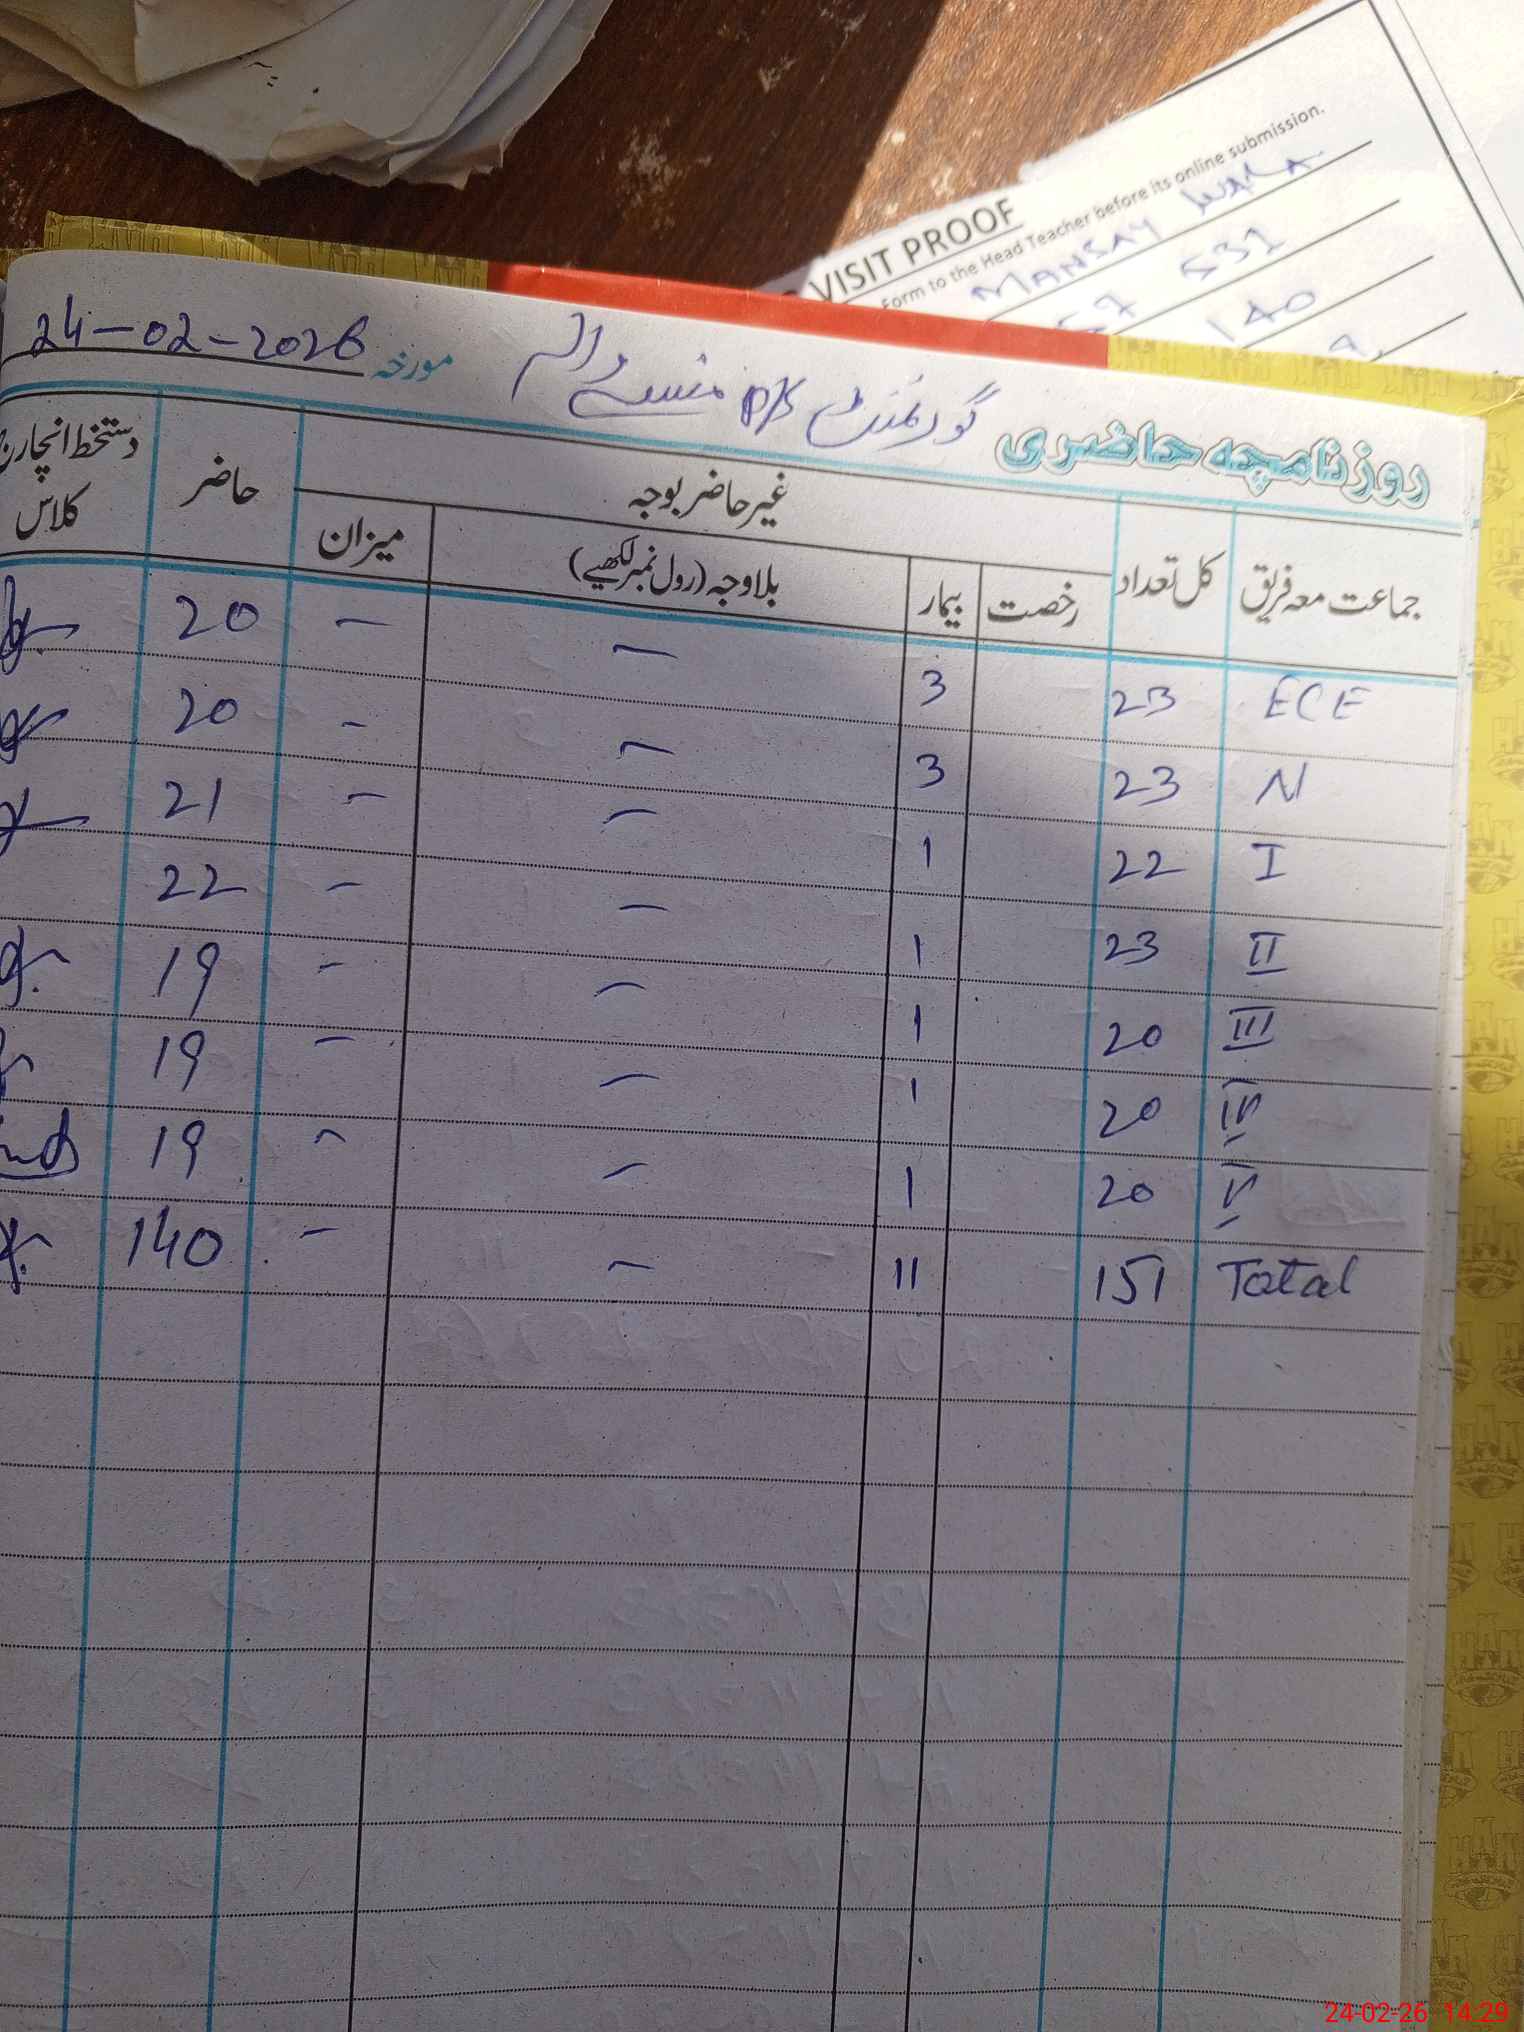 VISIT PROOF
Form to the Head Teacher before its online submission.
MANSAY WALA
531
140
24-02-2026 مورخہ
گورنمنٹ P/S منسے والہ
روزنامچہ حاضری
جماعت معہ فریق کل تعداد غیر حاضر بوجہ حاضر دستخط انچارج کلاس
رخصت بیمار بلاوجہ (رول نمبر لکھیے) میزان
ECE 23 3 – – 20
N 23 3 – – 20
I 22 1 – – 21
II 23 1 – – 22
III 20 1 – – 19
IV 20 1 – – 19
V 20 1 – – 19
Total 151 11 – – 140
24-02-26 14:29